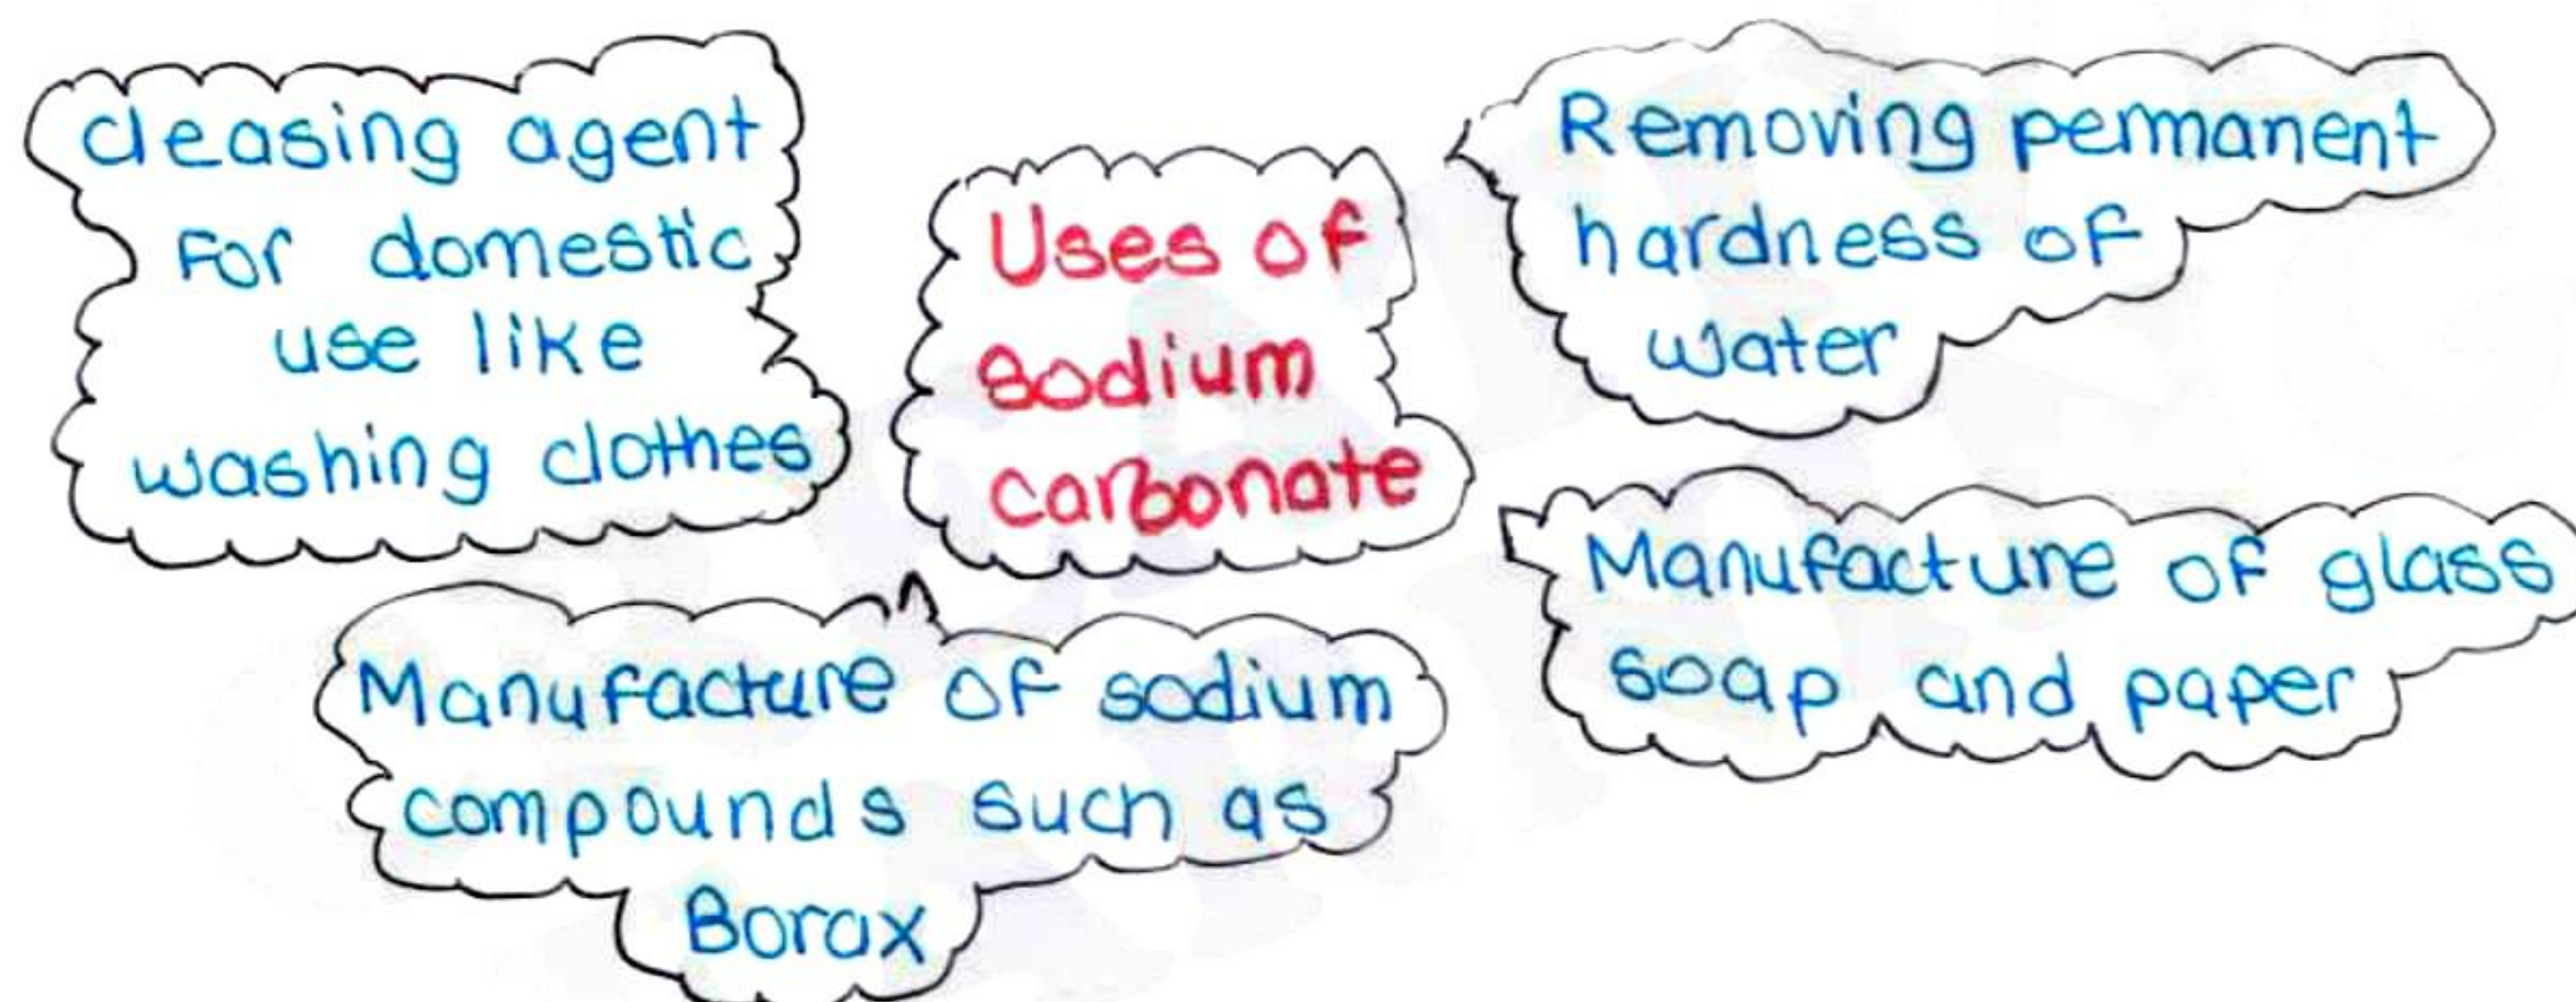 cleasing agent
For domestic
use like
washing clothes
Uses of
sodium
carbonate
Removing permanent
hardness of
water
Manufacture of glass
soap and paper
Manufacture of sodium
compounds such as
Borax